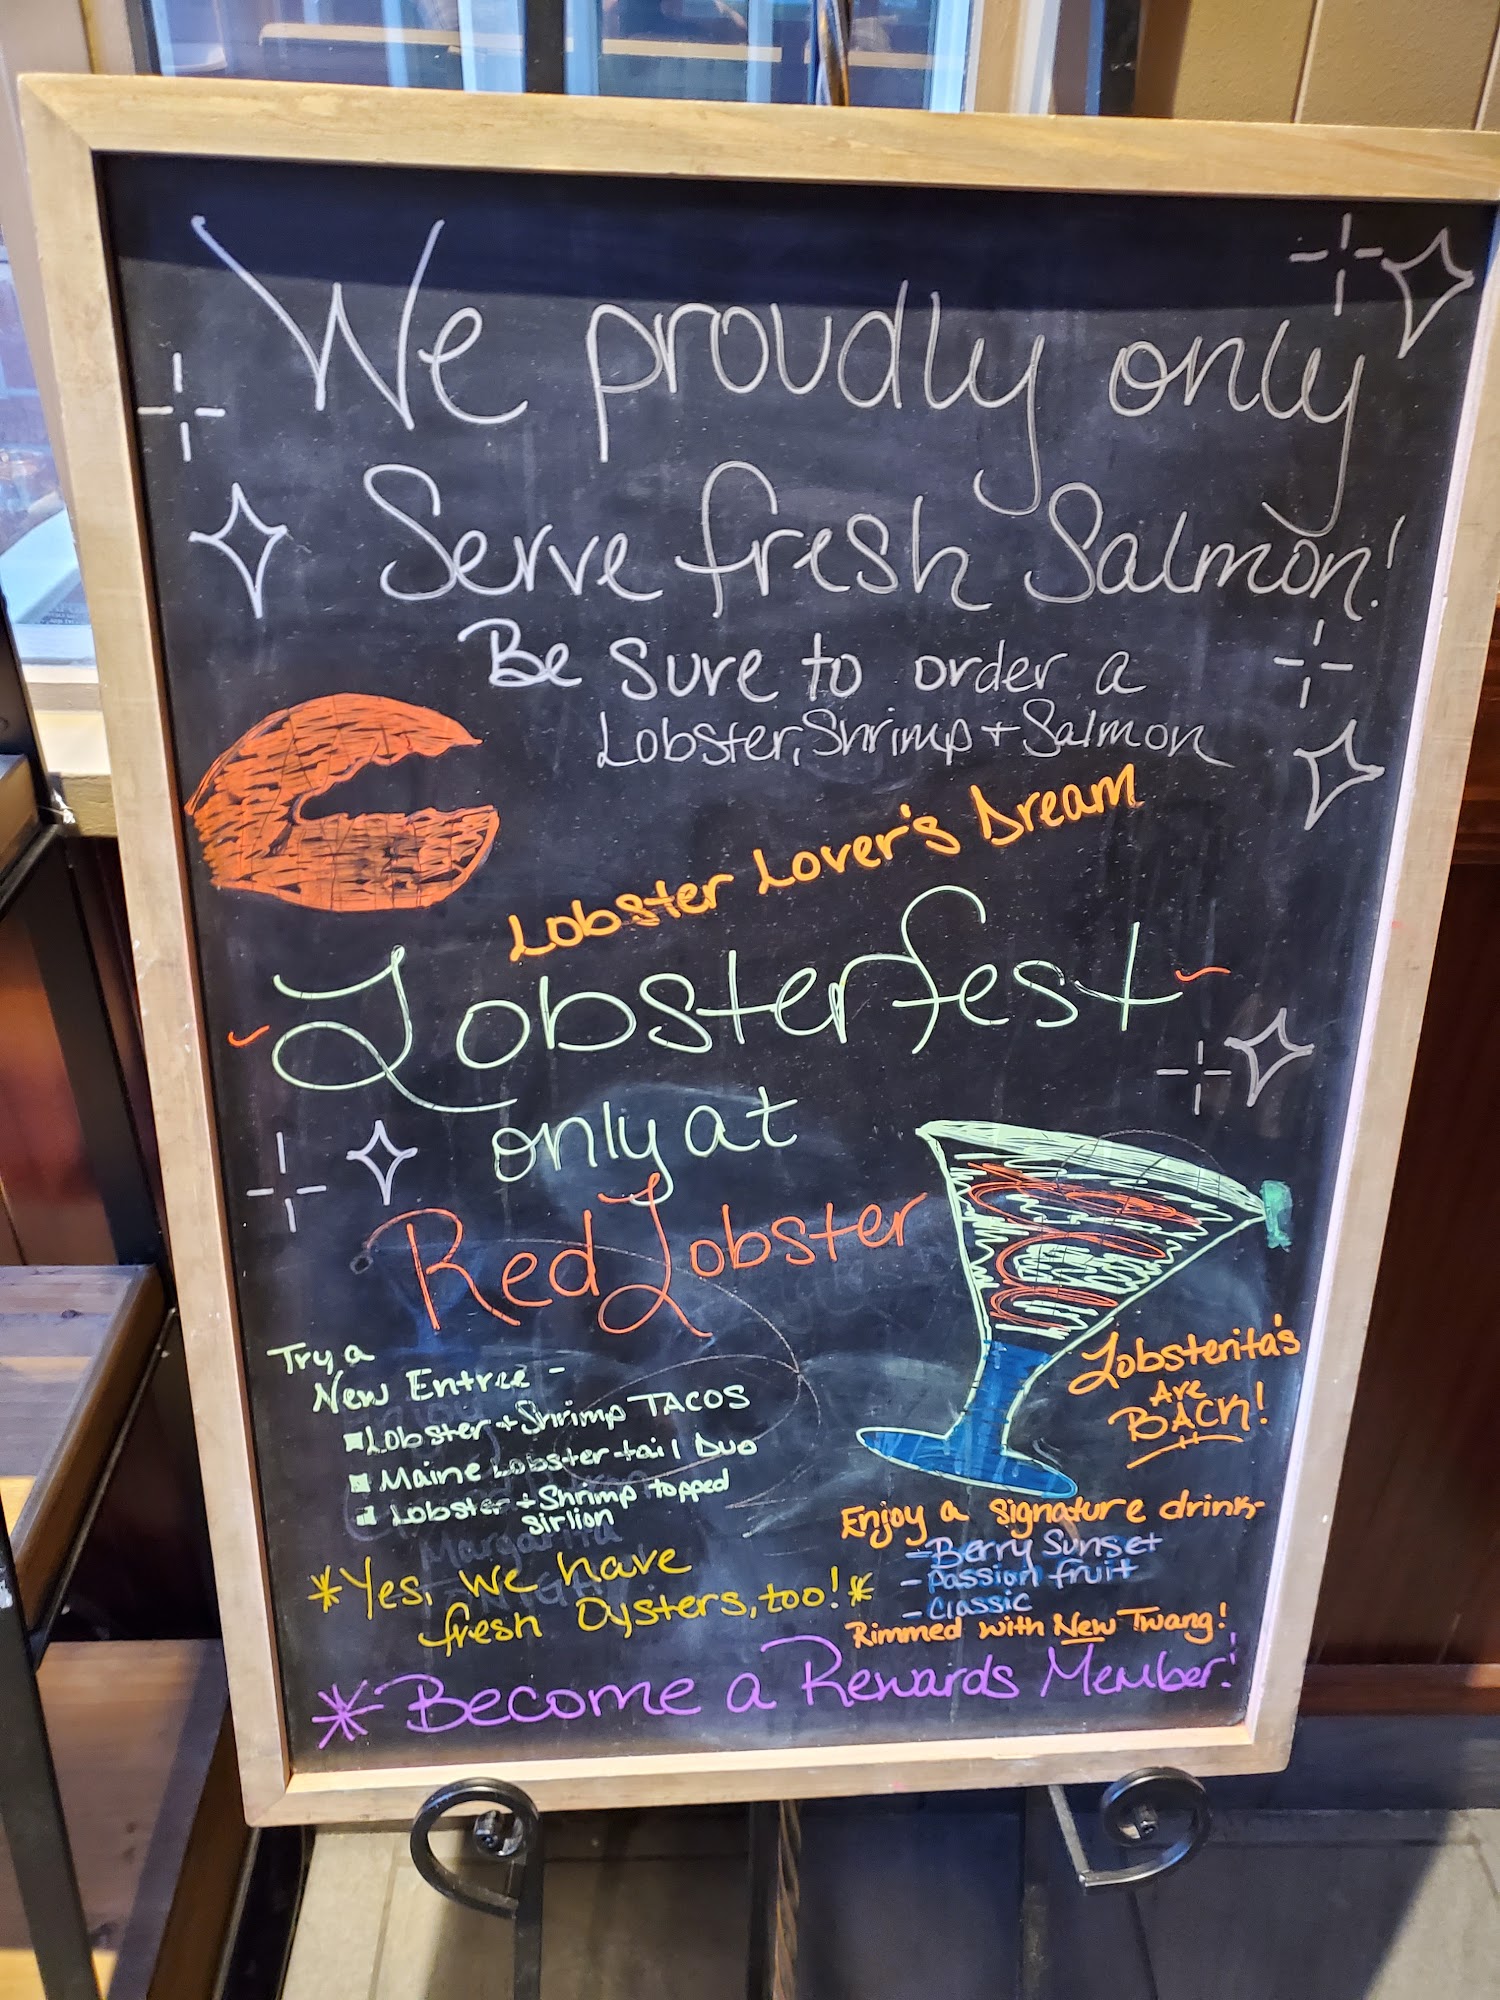 We proudly only
Serve fresh Salmon!
Be Sure to order a
Lobster, Shrimp + Salmon
Lobster Lover's Dream
Lobsterfest
only at
Red Lobster
Try a
New Entree -
Lobster + Shrimp TACOS
Maine Lobster tail Duo
Lobster + Shrimp topped
sirlion
*Yes, we have
fresh Oysters, too!*
Lobsterita's
Are
BACK!
Enjoy a signature drink-
- Berry Sunset
- Passion fruit
- Classic
Rimmed with New Twang!
*Become a Rewards Member!